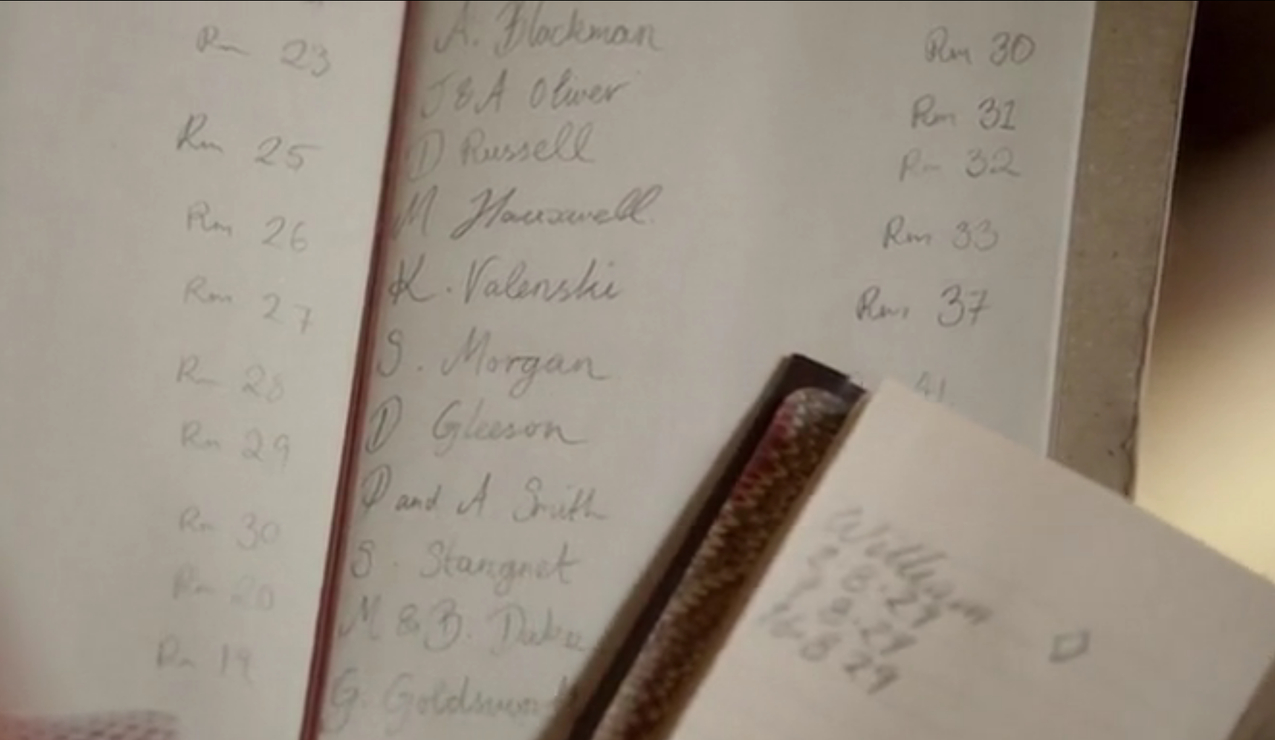 Rm 23
Rm 25
Rm 26
Rm 27
Rm 28
Rm 29
Rm 30
Rm 20
Rm 19
A. Blackman Rm 30
J & A Oliver Rm 31
D Russell Rm 32
M Hauxwell Rm 33
K. Valenski Rm 37
S. Morgan 41
D Gleeson
D and A Smith
S. Stangnet
M & B.
G.
William
8.29
8.29
16 8 29